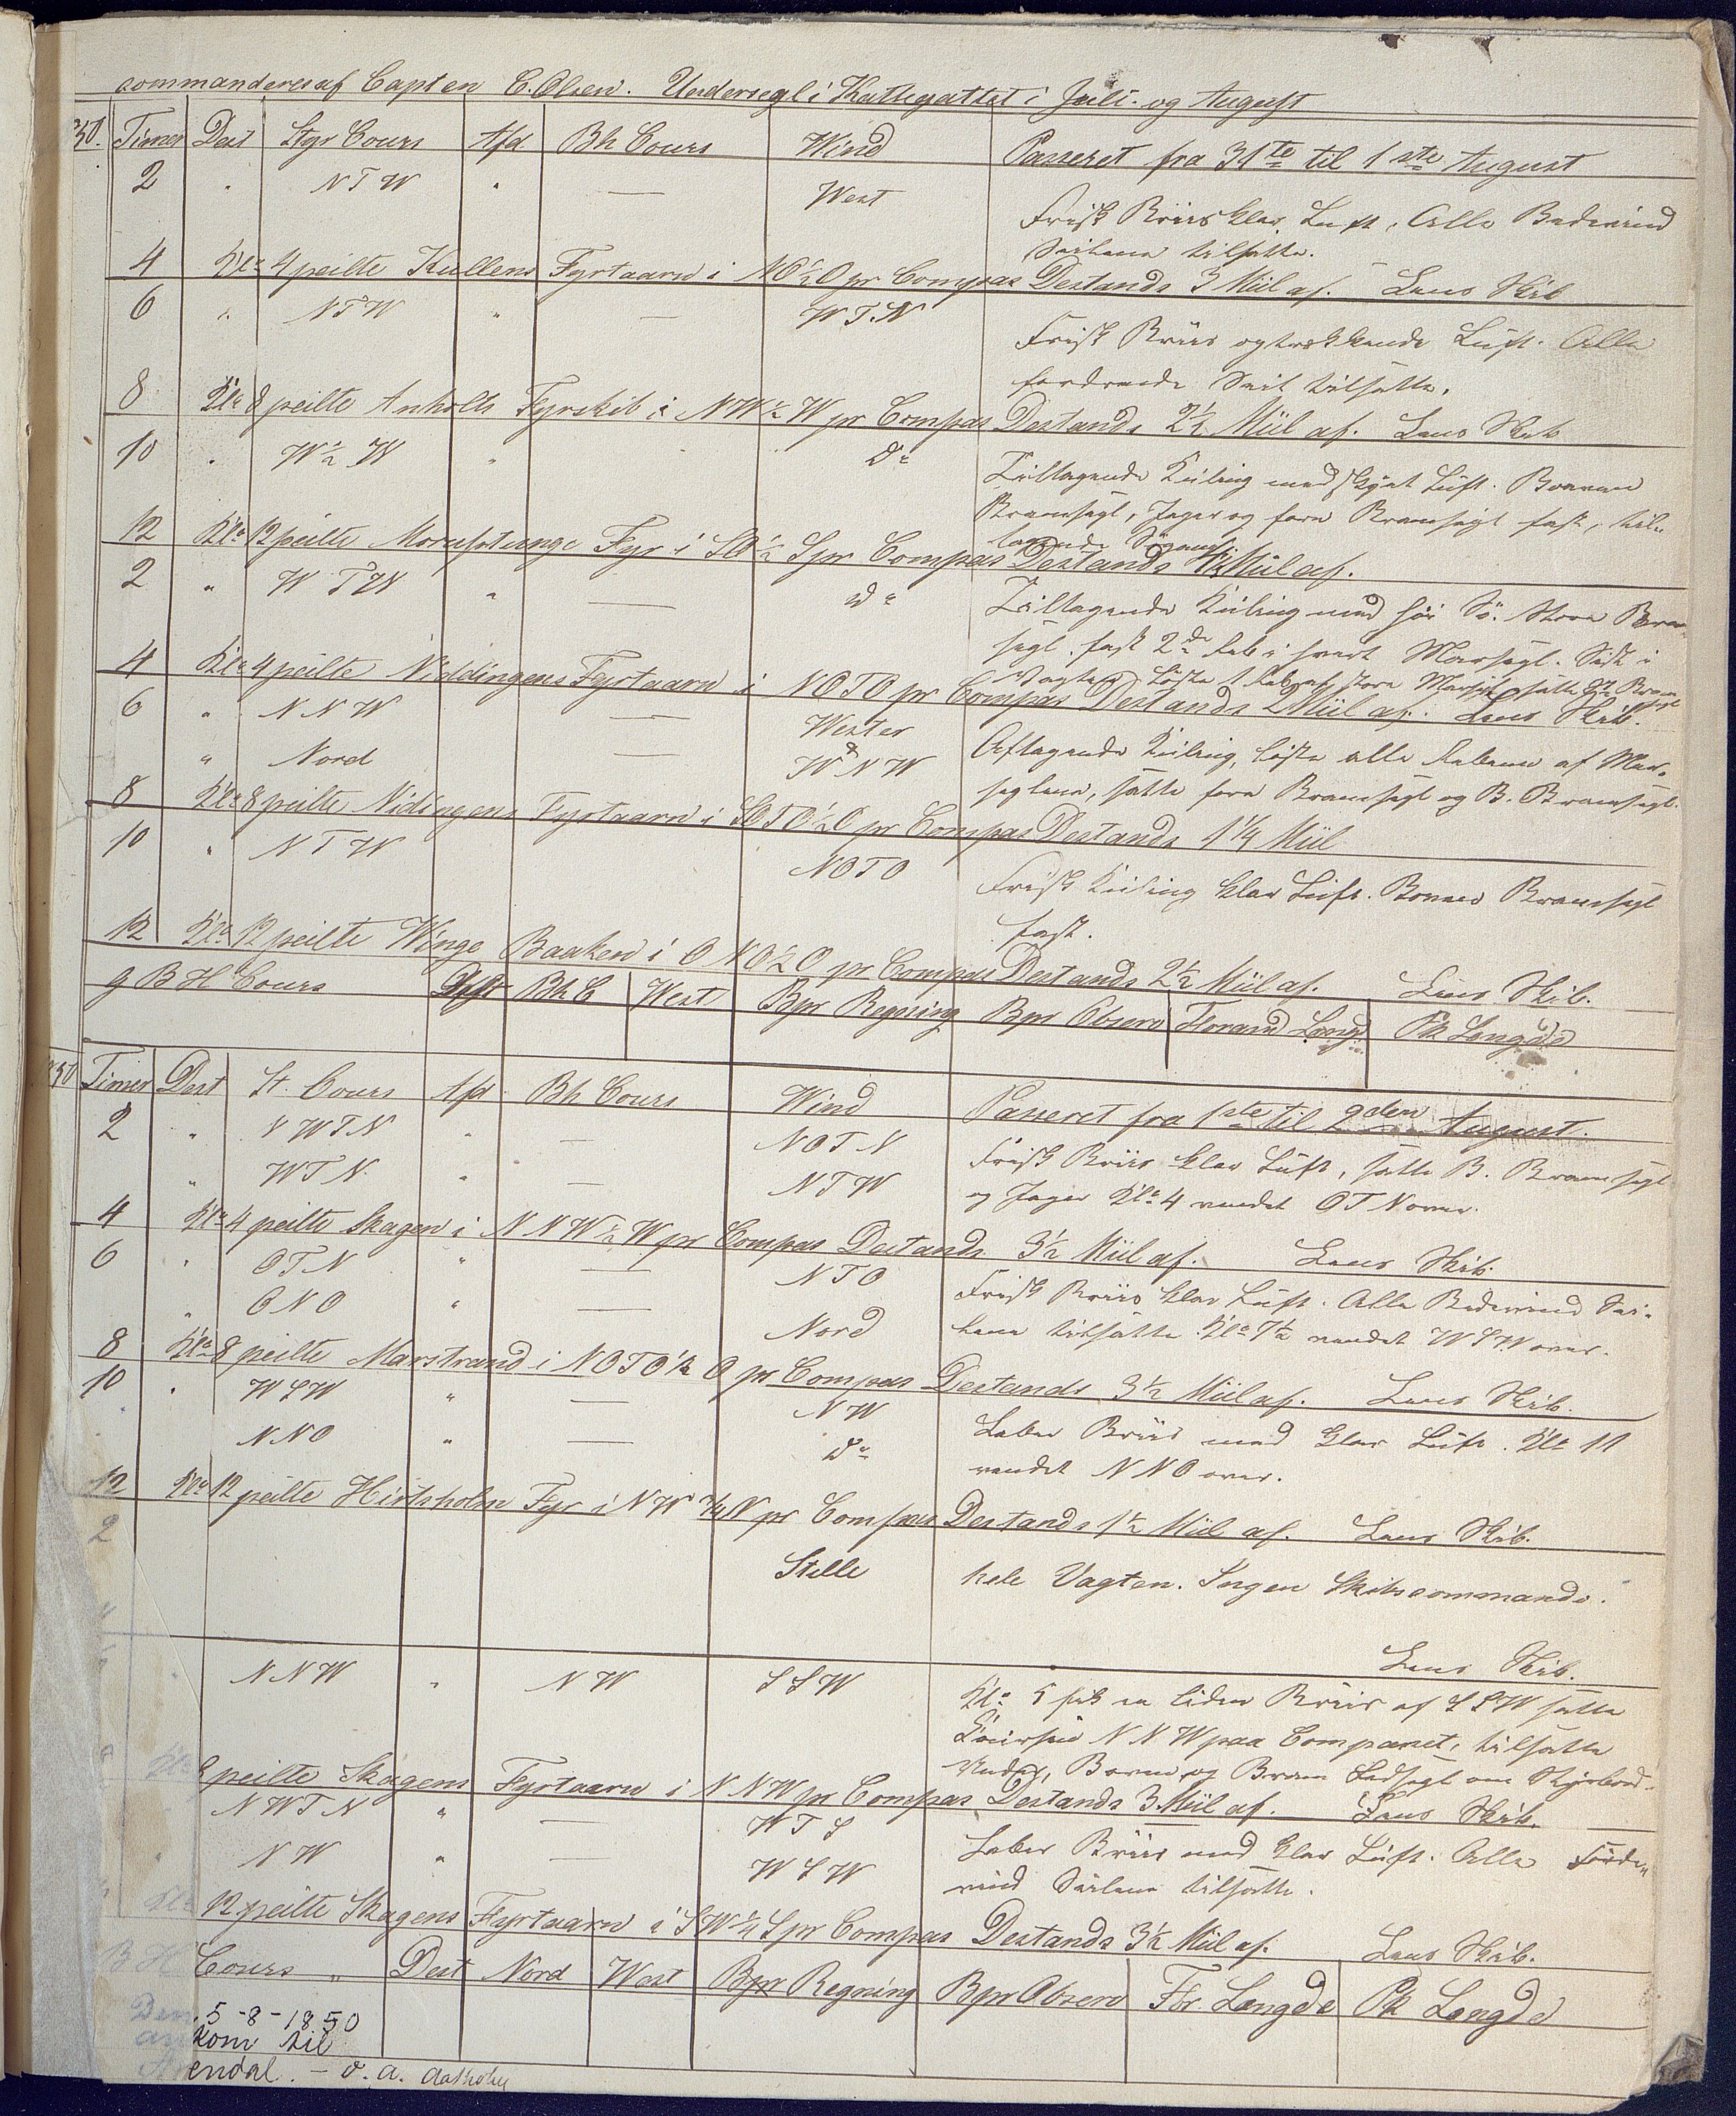 commanderes af Capten C. Olsen. Undersegl i Kattegattet i Juli og August
50. Timer Dest Styr Cours Afd Bh Cours Wind Passeret fra 31te til 1ste August
2 " NTW " — West Frisk Briis klar Luft, Alle Bidevind
Seilene tilsatte.
4 Kl: 4 peilte Kullens Fyrtaarn i NO½O pr Compas Destands 3 Miil af. Lens Skib
6 " NTW " — WTN Frisk Briis og trekkende Luft. Alle
fordrende Seil tilsatte.
8 Kl: 8 peilte Anholts Fyrskib i NW½W pr Compas Destands 2½ Miil af. Lens Skib
10 " N½W " do Tiltagende Kuling med skyet Luft. Boven
Bramsegl, Jager og fore Bramsegl fast,
12 Kl: 12 peilte Morupstange Fyr i SO½S pr Compas Destands Miil af.
2 " NTW " — do Tiltagende Kuling med høi Sö. Store Bram
segl fast 2de Reb i hvert Marssegl. Sidst i
Vagten löste 1 Reb af store Marssegl satte St. Bram
segl
4 Kl: 4 peilte Niddingens Fyrtaarn i NOTO pr Compas Destands 2 Miil af. Lens Skib.
6 " NNW — Wester Aftagende Kuling, löste alle Rebene af Mars
" Nord — WNW seglene, satte fore Bramsegl og B. Bramsegl.
8 Kl: 8 peilte Nidingens Fyrtaarn i SOTO½O pr Compas Destands 1¼ Miil
10 " NTW NOTO Frisk Kuling klar Luft. Boven Bramsegl
fast.
12 Kl: 12 peilte Winge Baaken i ONO½O pr Compas Destands 2½ Miil af. Lens Skib.
g BH Cours Dest Bh C West Bpr Regning Bpr Observ Forand Længd Pk Længde
50 Timer Dest St. Cours Afd Bh Cours Wind Passeret fra 1ste til 2den August.
2 " NWTN " — NOTN Frisk Briis klar Luft, satte B. Bramsegl
" WTN " — NTW og Jager Kl: 4 vendet OTN over.
4 Kl: 4 peilte Skagen i NNW½W pr Compas Destands 3½ Miil af. Lens Skib.
6 " OTN " — NTO Frisk Briis klar Luft. Alle Bidevind Sei-
" ONO " — Nord lene tilsatte. Kl: 7½ vendet WSW over.
8 Kl: 8 peilte Marstrand i NOTO½O pr Compas Destands 3½ Miil af. Lens Skib.
10 " WSW " — NW Laber Briis med klar Luft. Kl: 11
NNO " — do vendet NNO over.
12 Kl: 12 peilte Hirtsholm Fyr i NW¾N pr Compas Destands 1½ Miil af. Lens Skib.
2 Stille hele Vagten. Ingen Skibscommando.
Lens Skib.
" NNW " NW SSW Kl: 5 fik en liden Briis af SSW satte
NNW paa Compasset, tilsatte
Under, Boven og Bram Ledsegl om Styrbord.
Kl: 8 peilte Skagens Fyrtaarn i NNW pr Compas Destands 3 Miil af. Lens Skib.
NWTN " — WTS Laber Briis med klar Luft. Alle
" NW " — WSW vind Seilene tilsatte.
Kl: 12 peilte Skagens Fyrtaarn i SW¼S pr Compas Destands 3½ Miil af. Lens Skib.
BH Cours " Dest Nord West Bpr Regning Bpr Observ For. Længde Pk Længde
Den 5-8-1850
ankom til
Arendal. – d. a.